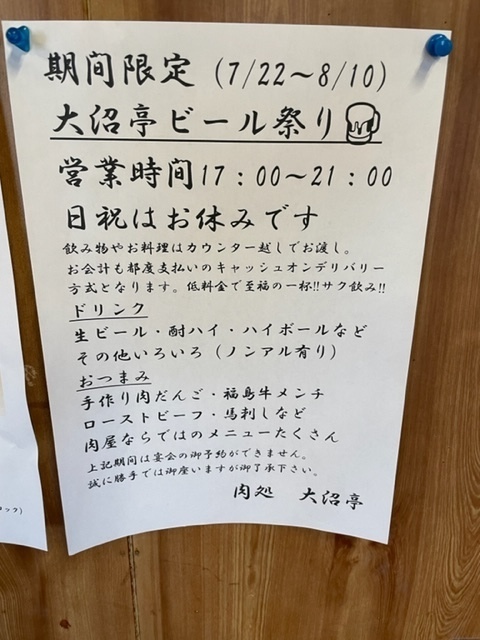 期間限定（7/22～8/10）
大沼亭ビール祭り
営業時間17：00～21：00
日祝はお休みです
飲み物やお料理はカウンター越しでお渡し。
お会計も都度支払いのキャッシュオンデリバリー
方式となります。低料金で至福の一杯!!サク飲み!!
ドリンク
生ビール・酎ハイ・ハイボールなど
その他いろいろ（ノンアル有り）
おつまみ
手作り肉だんご・福島牛メンチ
ローストビーフ・馬刺しなど
肉屋ならではのメニューたくさん
上記期間は宴会の御予約ができません。
誠に勝手では御座いますが御了承下さい。
肉処　大沼亭